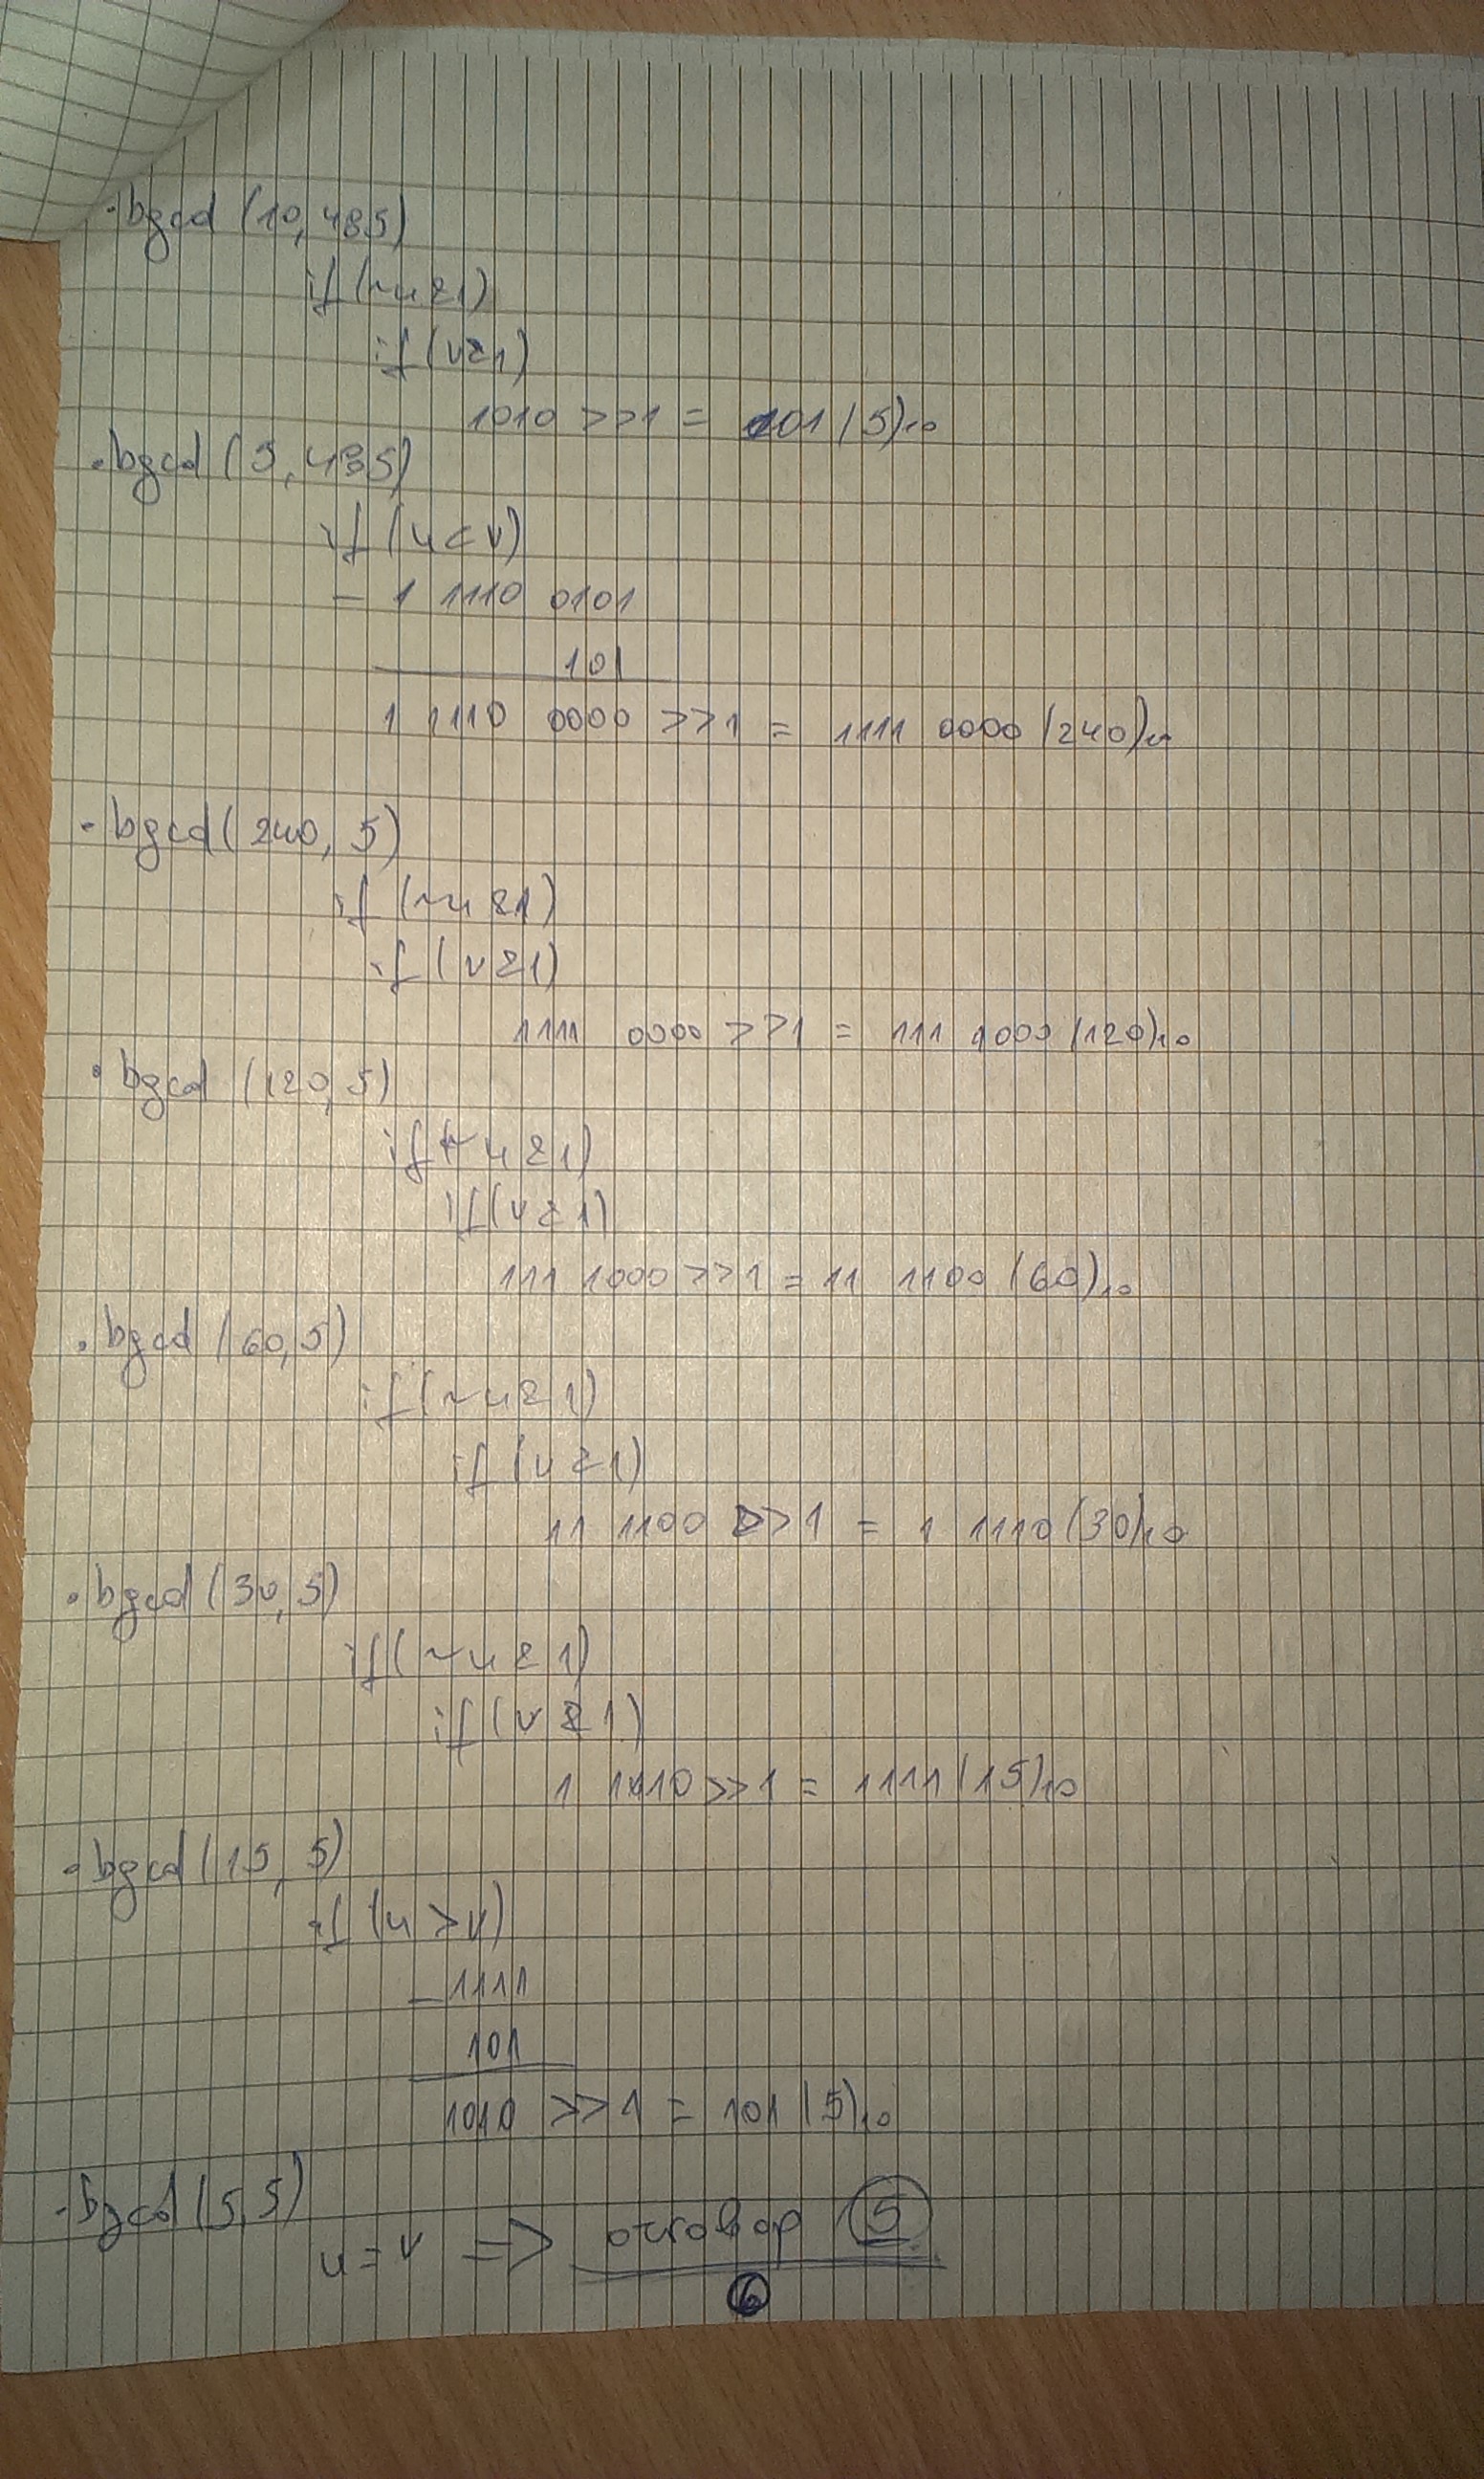 ·bgcd (10, 485)
if (~u & 1)
if (v & 1)
1010 >>1 = 101 (5)10
·bgcd (5, 485)
if (u < v)
- 1 1110 0101
101
1 1110 0000 >>1 = 1111 0000 (240)10
·bgcd (240, 5)
if (~u & 1)
if (v & 1)
1111 0000 >>1 = 111 1000 (120)10
·bgcd (120, 5)
if (~u & 1)
if (v & 1)
111 1000 >>1 = 11 1100 (60)10
·bgcd (60, 5)
if (~u & 1)
if (v & 1)
11 1100 >>1 = 1 1110 (30)10
·bgcd (30, 5)
if (~u & 1)
if (v & 1)
1 1110 >>1 = 1111 (15)10
·bgcd (15, 5)
if (u > v)
- 1111
101
1010 >>1 = 101 (5)10
·bgcd (5, 5)
u = v => отговор 5
6